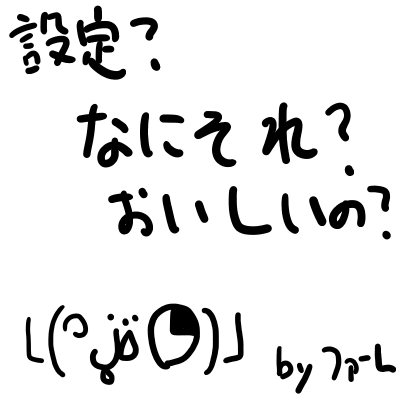 設定?
なにそれ?
おいしいの?
└(՞ةڼ◔)」
by ファーム